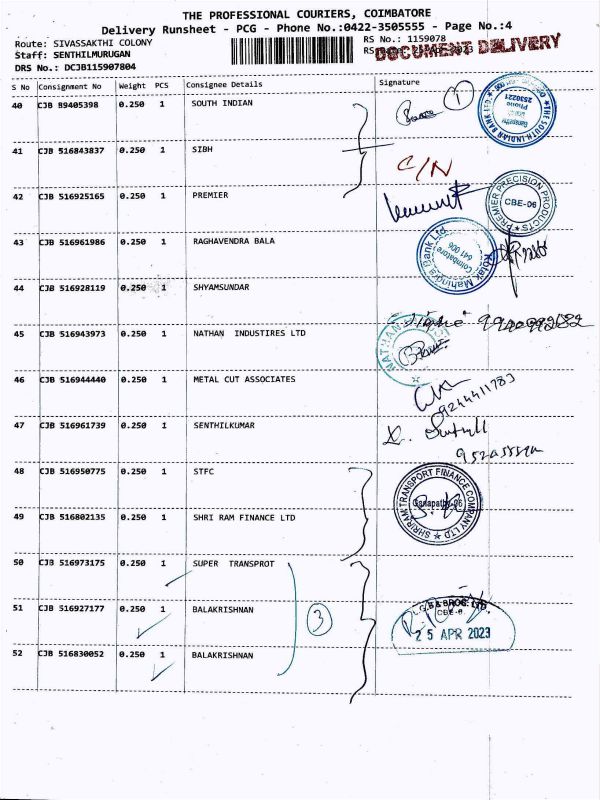 THE PROFESSIONAL COURIERS, COIMBATORE
Delivery Runsheet - PCG - Phone No.:0422-3505555 - Page No.:4
Route: SIVASSAKTHI COLONY
RS No.: 1159078
Staff: SENTHILMURUGAN
DOCUMENT DELIVERY
DRS No.: DCJB115907804
S No Consignment No Weight PCS Consignee Details Signature
40 CJB 89405398 0.250 1 SOUTH INDIAN
1
THE SOUTH INDIAN BANK LTD.
Phone
2530221
41 CJB 516843837 0.250 1 SIBH
C/N
42 CJB 516925165 0.250 1 PREMIER
PREMIER PRECISION PRODUCTS
CBE-06
43 CJB 516961986 0.250 1 RAGHAVENDRA BALA
Kotak Mahindra Bank Ltd.
Coimbatore
641 006
44 CJB 516928119 0.250 1 SHYAMSUNDAR
45 CJB 516943973 0.250 1 NATHAN INDUSTIRES LTD
NATHAN
46 CJB 516944440 0.250 1 METAL CUT ASSOCIATES
9244411783
47 CJB 516961739 0.250 1 SENTHILKUMAR
48 CJB 516950775 0.250 1 STFC
SHRIRAM TRANSPORT FINANCE COMPANY LTD
Ganapathy-06
49 CJB 516802135 0.250 1 SHRI RAM FINANCE LTD
50 CJB 516973175 0.250 1 SUPER TRANSPROT
51 CJB 516927177 0.250 1 BALAKRISHNAN
3
L.G.B & BROS. LTD.
CBE-6.
25 APR 2023
52 CJB 516830052 0.250 1 BALAKRISHNAN